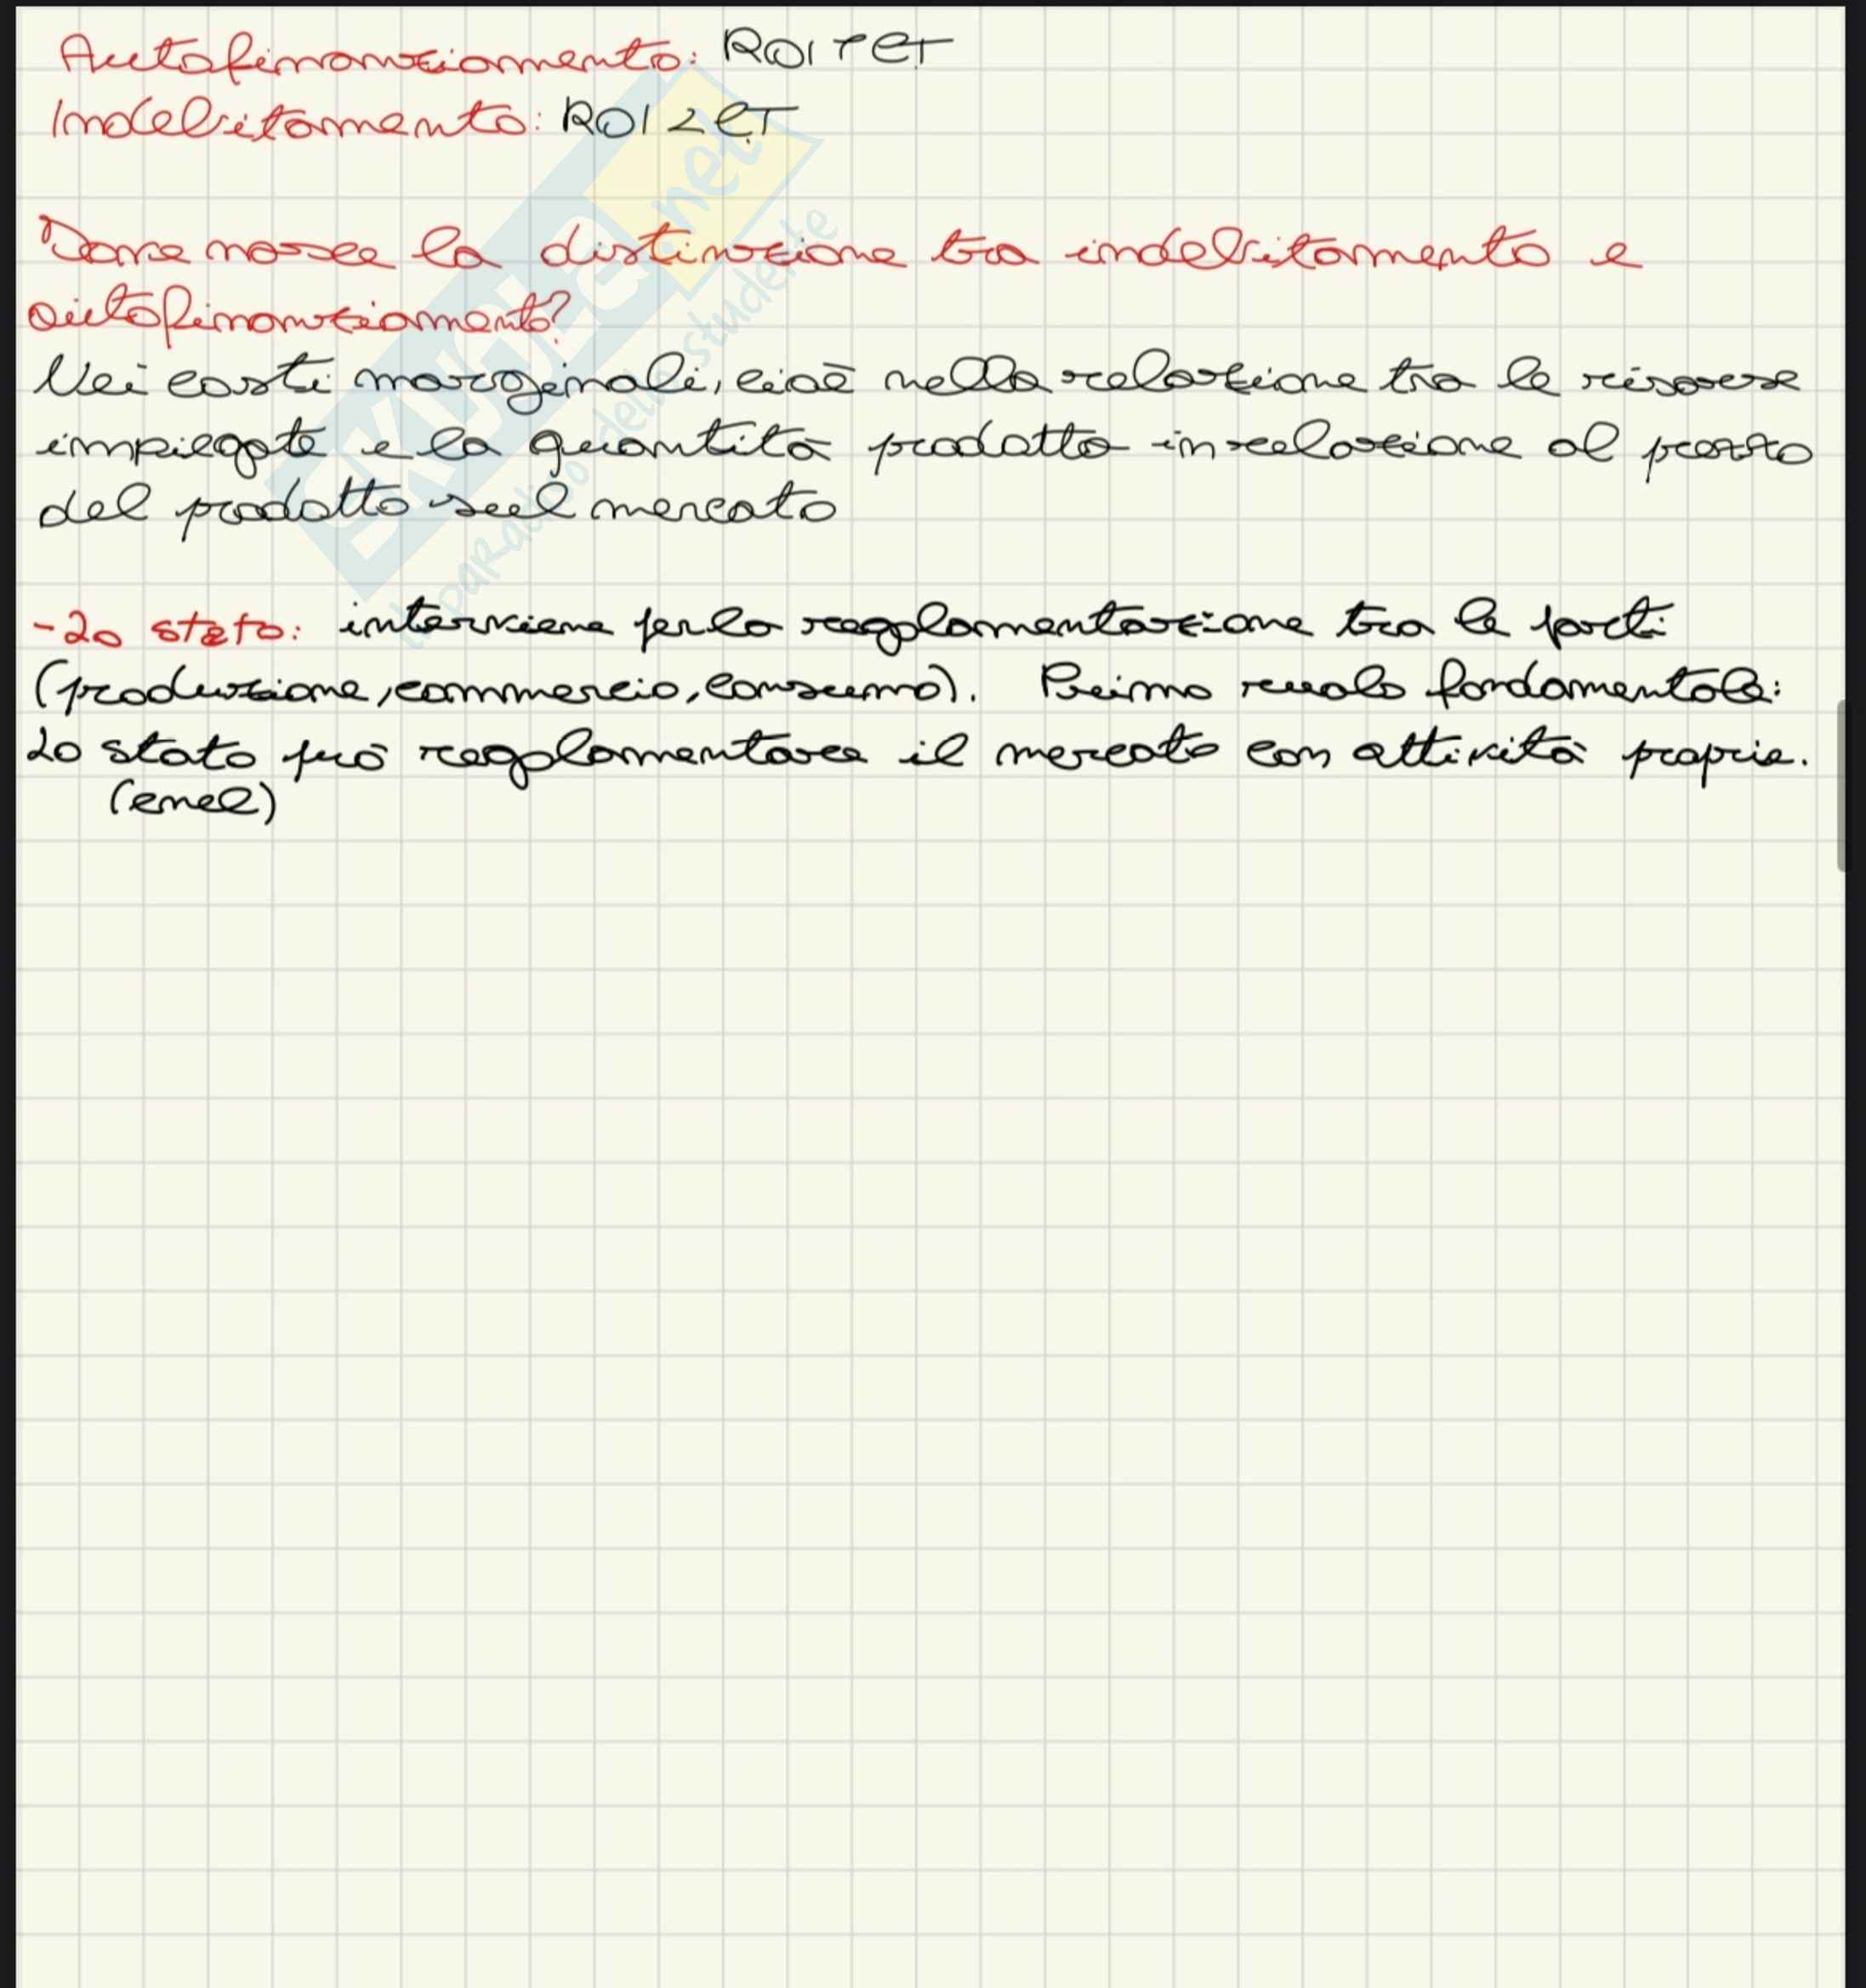 Autofinanziamento: ROI > CT
Indebitamento: ROI < CT
Dove nasce la distinzione tra indebitamento e
autofinanziamento?
Nei costi marginali, cioè nella relazione tra le risorse
impiegate e la quantità prodotta in relazione al prezzo
del prodotto sul mercato
-Lo stato: interviene per la regolamentazione tra le parti
(produzione, commercio, consumo). Primo ruolo fondamentale:
Lo stato può regolamentare il mercato con attività proprie.
(enel)
SKUOLA.net
il paradiso dello studente